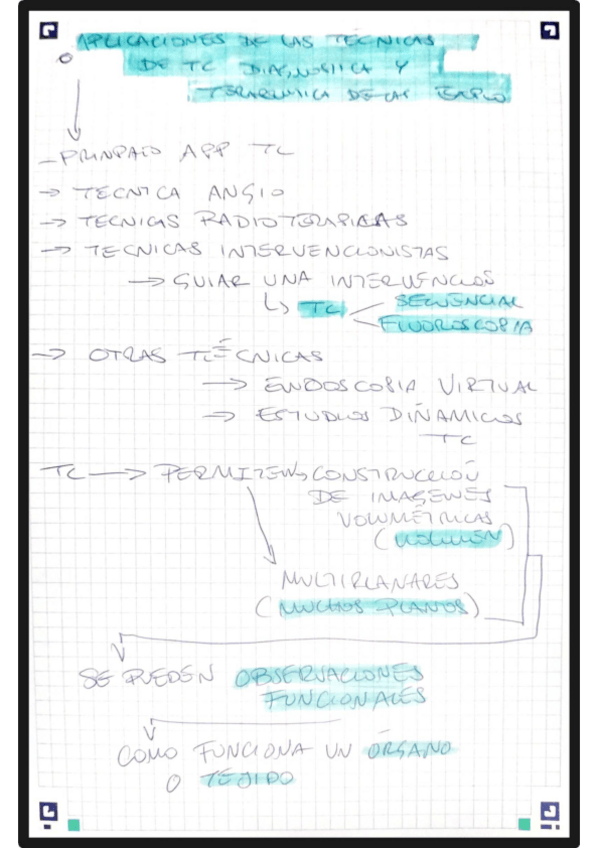 APLICACIONES DE LAS TÉCNICAS
DE TC DIAGNOSTICA Y
TERAPEUTICA DE LAS
- APP TC
→ TECNICA ANGIO
→ TECNICAS RADIOTERAPICAS
→ TECNICAS INTERVENCIONISTAS
→ GUIAR UNA INTERVENCION
↳ TC SECUENCIAL
FLUOROSCOPIA
→ OTRAS TÉCNICAS
→ ENDOSCOPIA VIRTUAL
→ ESTUDIOS DINAMICOS
TC
TC → PERMITEN CONSTRUCCIÓN
DE IMAGENES
VOLUMÉTRICAS
(VOLUMEN)
MULTIPLANARES
(MUCHOS PLANOS)
SE PUEDEN OBSERVACIONES
FUNCIONALES
COMO FUNCIONA UN ÓRGANO
O TEJIDO